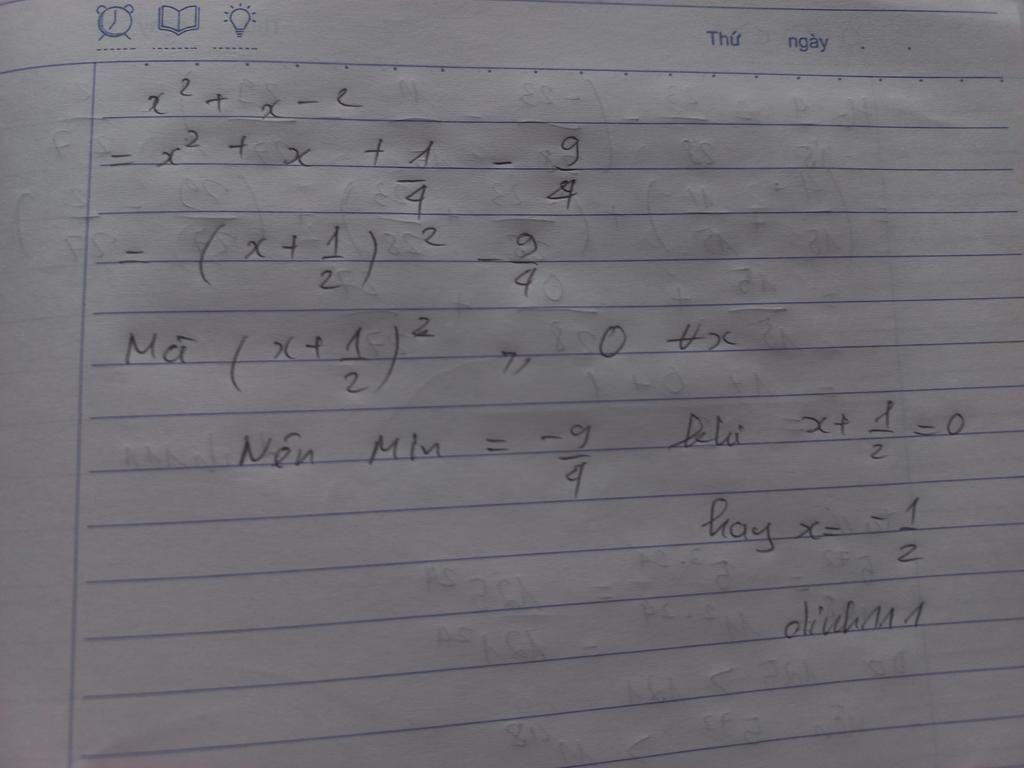 Thứ ngày . .
x² + x - 2
= x² + x + 1/4 - 9/4
= (x + 1/2)² - 9/4
Mà (x + 1/2)² ≥ 0 ∀x
Nên Min = -9/4 khi x + 1/2 = 0
hay x = -1/2